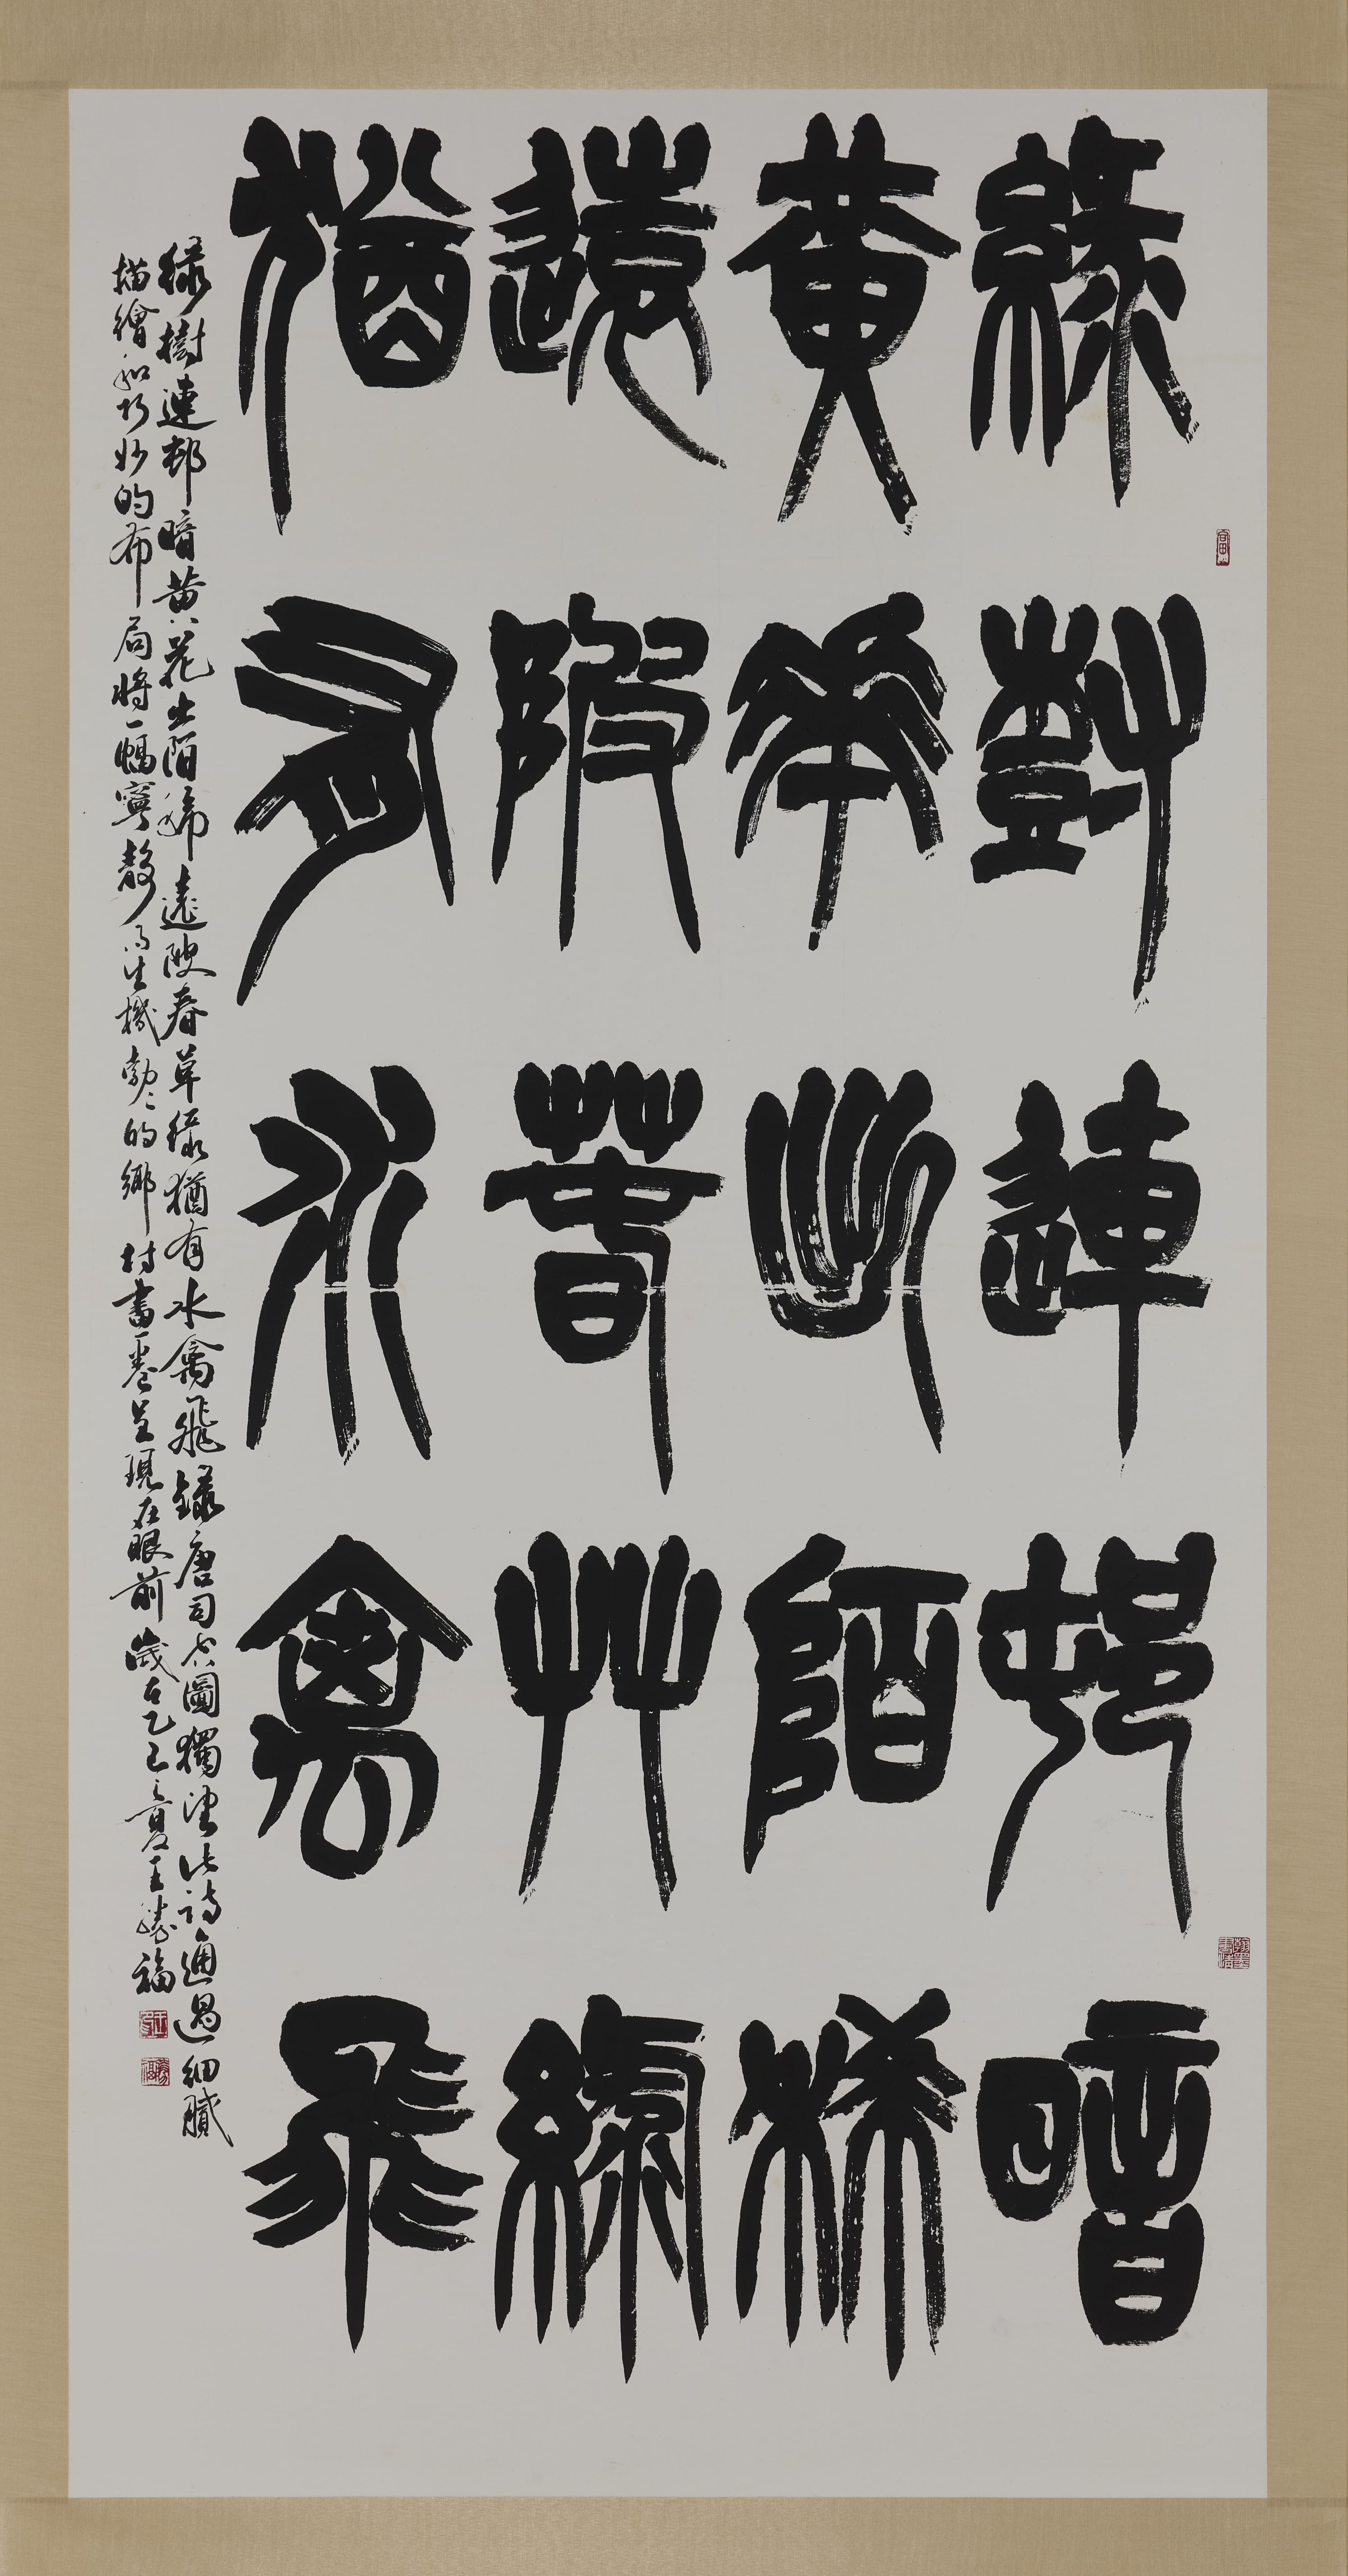 綠樹連邨暗
黃華出陌稀
遠陂萅艸綠
猶有水禽飛
綠樹連邨暗黃花出陌稀遠陂春草綠猶有水禽飛錄唐司空圖獨望此詩通過細膩
描繪和巧妙的布局將一幅寧靜而生機勃々的鄉村畫卷呈現在眼前歲在乙巳之夏王勝福